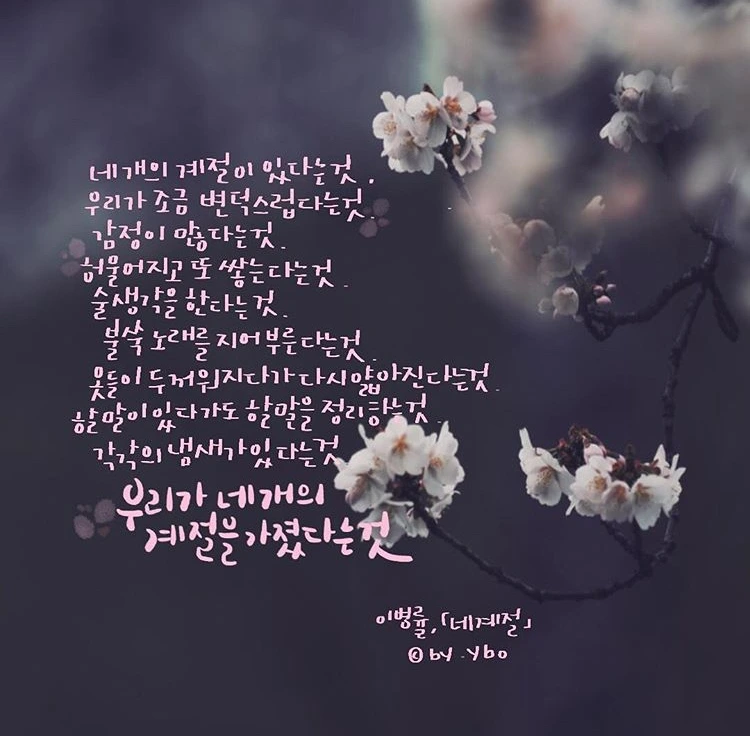 네 개의 계절이 있다는 것,
우리가 조금 변덕스럽다는 것.
감정이 많다는 것.
허물어지고 또 쌓는다는 것.
술 생각을 한다는 것.
불쑥 노래를 지어 부른다는 것.
옷들이 두꺼워지다가 다시 얇아진다는 것.
할 말이 있다가도 할 말을 정리하는 것.
각각의 냄새가 있다는 것
우리가 네 개의
계절을 가졌다는 것
이병률,「네계절」
© by .ybo